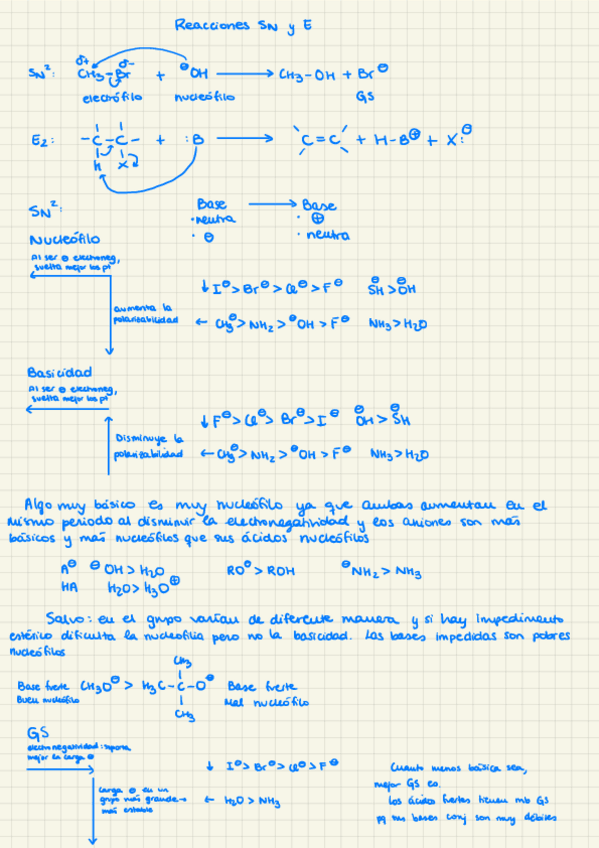 Reacciones SN y E
SN²: CH₃-Br + ⊖OH → CH₃-OH + Br⊖
δ+ δ-
electrófilo nucleófilo GS
E2: -C-C- + :B → C=C + H-B⊕ + X:⊖
H X
SN²: Base → Base
· neutra · ⊕
· ⊖ · neutra
Nucleófilo
Al ser ⊖ electroneg,
suelta mejor los
↓ I⊖ > Br⊖ > Cl⊖ > F⊖ SH⊖ > OH⊖
aumenta la
polarizabilidad ← CH₃⊖ > NH₂ > ⊖OH > F⊖ NH₃ > H₂O
Basicidad
Al ser ⊖ electroneg,
suelta mejor los
↓ F⊖ > Cl⊖ > Br⊖ > I⊖ OH⊖ > SH⊖
Disminuye la
polarizabilidad ← CH₃⊖ > NH₂ > ⊖OH > F⊖ NH₃ > H₂O
Algo muy básico es muy nucleófilo ya que ambas aumentan en el
mismo periodo al disminuir la electronegatividad y los aniones son más
básicos y más nucleófilos que sus ácidos nucleófilos
A⊖ ⊖OH > H₂O RO⊖ > ROH ⊖NH₂ > NH₃
HA H₂O > H₃O⊕
Salvo: en el grupo varían de diferente manera y si hay impedimento
estérico dificulta la nucleofilia pero no la basicidad. Las bases impedidas son pobres
nucleófilos
CH₃
Base fuerte CH₃O⊖ > H₃C-C-O⊖ Base fuerte
Buen nucleófilo Mal nucleófilo
CH₃
GS
electronegatividad: soporta
mejor la carga ⊖
↓ I⊖ > Br⊖ > Cl⊖ > F⊖
carga ⊖ en un
grupo más grande →
más estable
← H₂O > NH₃
Cuanto menos básica sea,
mejor GS es.
Los ácidos fuertes tienen mb GS
pq sus bases conj son muy débiles